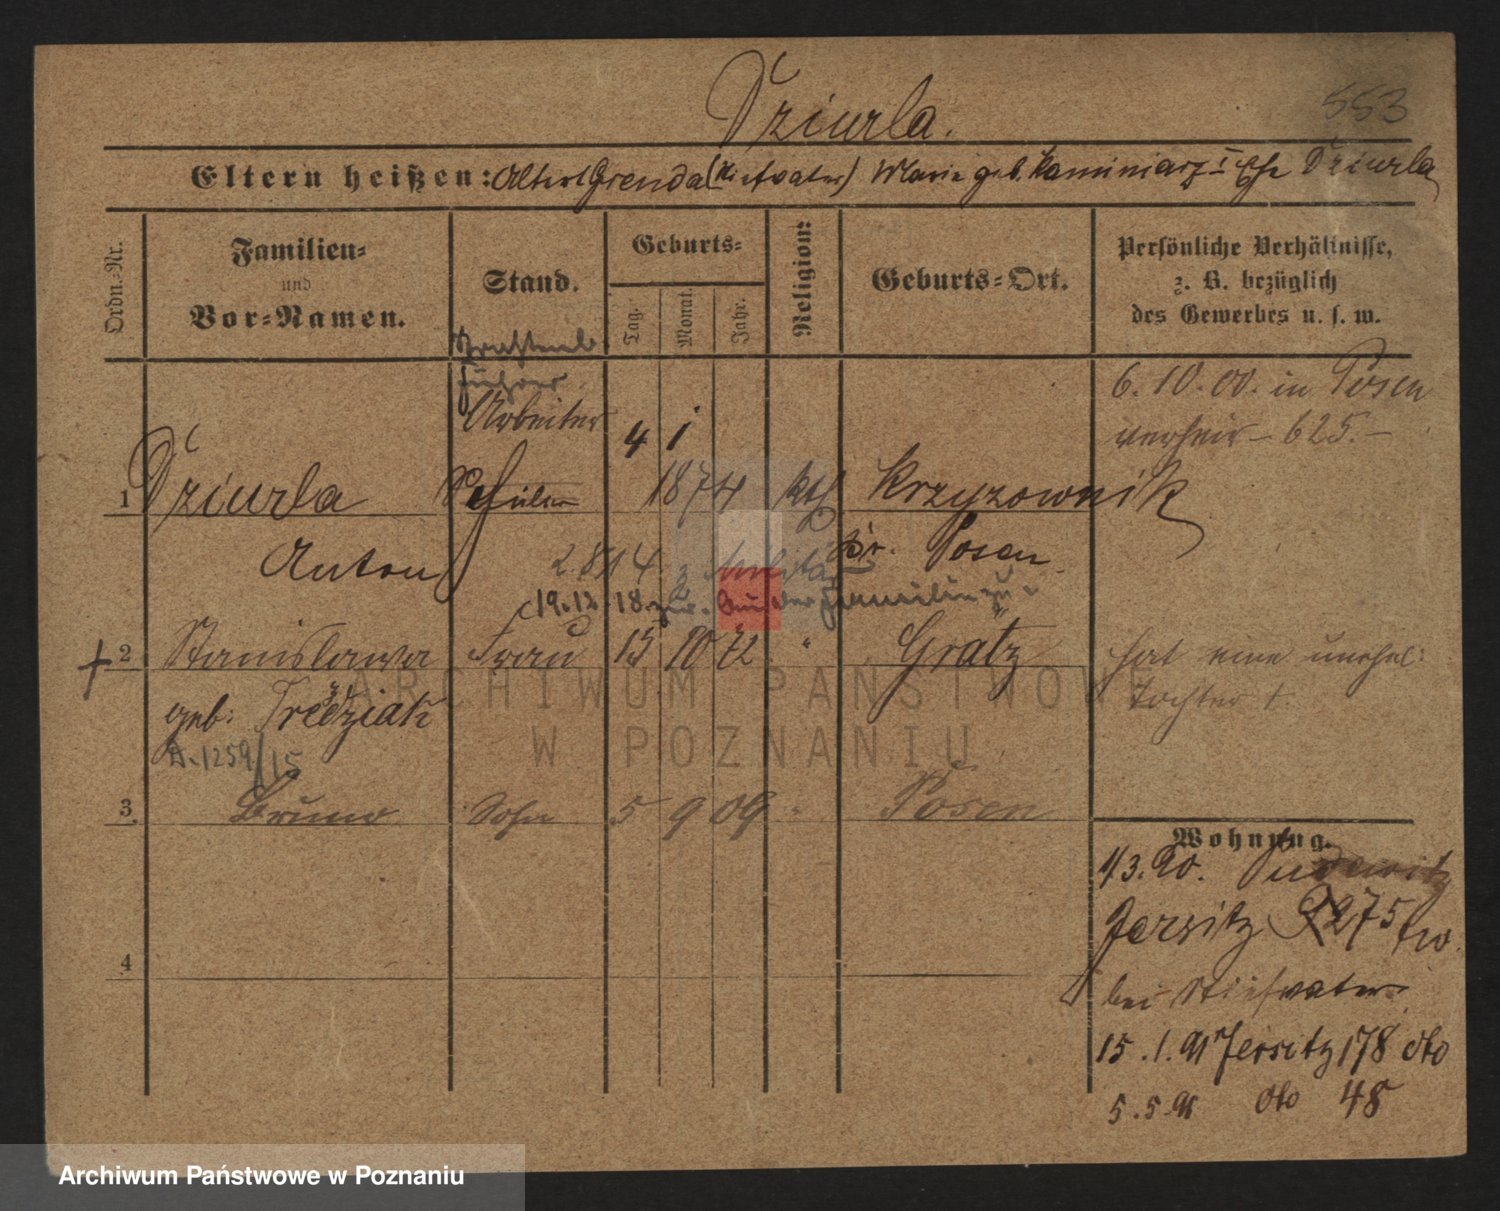 553
Dziurla.
Eltern heißen: Albert Grenda (Stiefvater) Marie geb. Kaminiarz I Ehe Dziurla
Ordn.-Nr.
Familien-
und
Vor-Namen.
Stand.
Geburts-
Tag.
Monat.
Jahr.
Religion:
Geburts-Ort.
Persönliche Verhältnisse,
z. B. bezüglich
des Gewerbes u. s. w.
führer
Arbeiter
6. 10. 00. in Posen
verheir. 625.
1 Dziurla Schüler 4 1 1874 kth Krzyzownik
Anton Kr. Posen
2 8 14 z. Militär
19.12.18. zur. Familie
2 Stanislawa Frau 15 10 72 " Grätz hat eine unehel:
geb: Tochter †.
A. 1259/15
3 Bruno Sohn 5 9 09 " Posen
4
Wohnung.
1/3. 90. Pudewitz
Jersitz 275
bei Stiefvater
15.1.91 Jersitz 178 dto
5.5.91 dto 48
ARCHIWUM PAŃSTWOWE
W POZNANIU
Archiwum Państwowe w Poznaniu